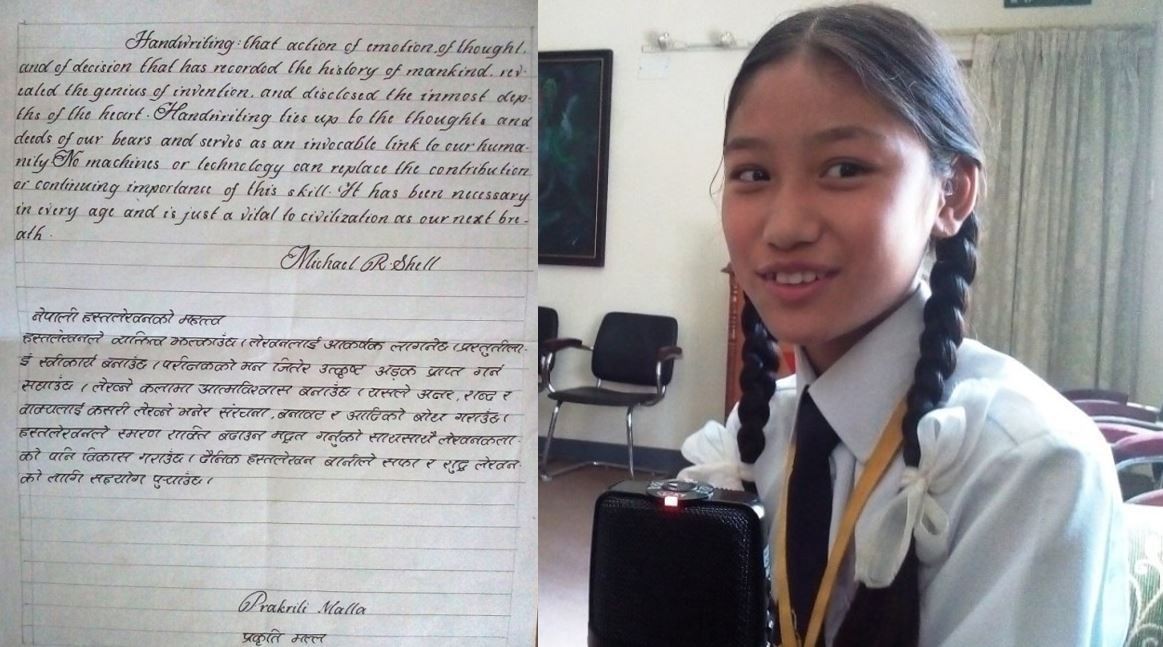 Handwriting: that action of emotion, of thought,
and of decision that has recorded the history of mankind, rev-
ealed the genius of invention, and disclosed the inmost dep-
ths of the heart. Handwriting ties up to the thoughts and
deeds of our bears and serves as an invocable link to our huma-
nity. No machines or technology can replace the contribution
or continuing importance of this skill. It has been necessary
in every age and is just a vital to civilization as our next bre-
ath.
Michael R Shell
नेपाली हस्तलेखनको महत्त्व
हस्तलेखनले व्यक्तित्व झल्काउँछ। लेखनलाई आकर्षक लाग्नेछ। प्रस्तुतीला-
ई स्वीकार्य बनाउँछ। परीक्षकको मन जितेर उत्कृष्ट अङ्क प्राप्त गर्न
सघाउँछ। लेख्ने कलामा आत्मविश्वास बनाउँछ। यसले अक्षर, शब्द र
वाक्यलाई कसरी लेख्ने भनेर संरचना, बनावट र आदिको बोध गराउँछ।
हस्तलेखनले स्मरण शक्ति बढाउन मद्दत गर्नुको साथसाथै लेखनकला-
को पनि विकास गराउँछ। दैनिक हस्तलेखन बानीले सफा र शुद्ध लेखन-
को लागि सहयोग पुऱ्याउँछ।
Prakriti Malla
प्रकृति मल्ल